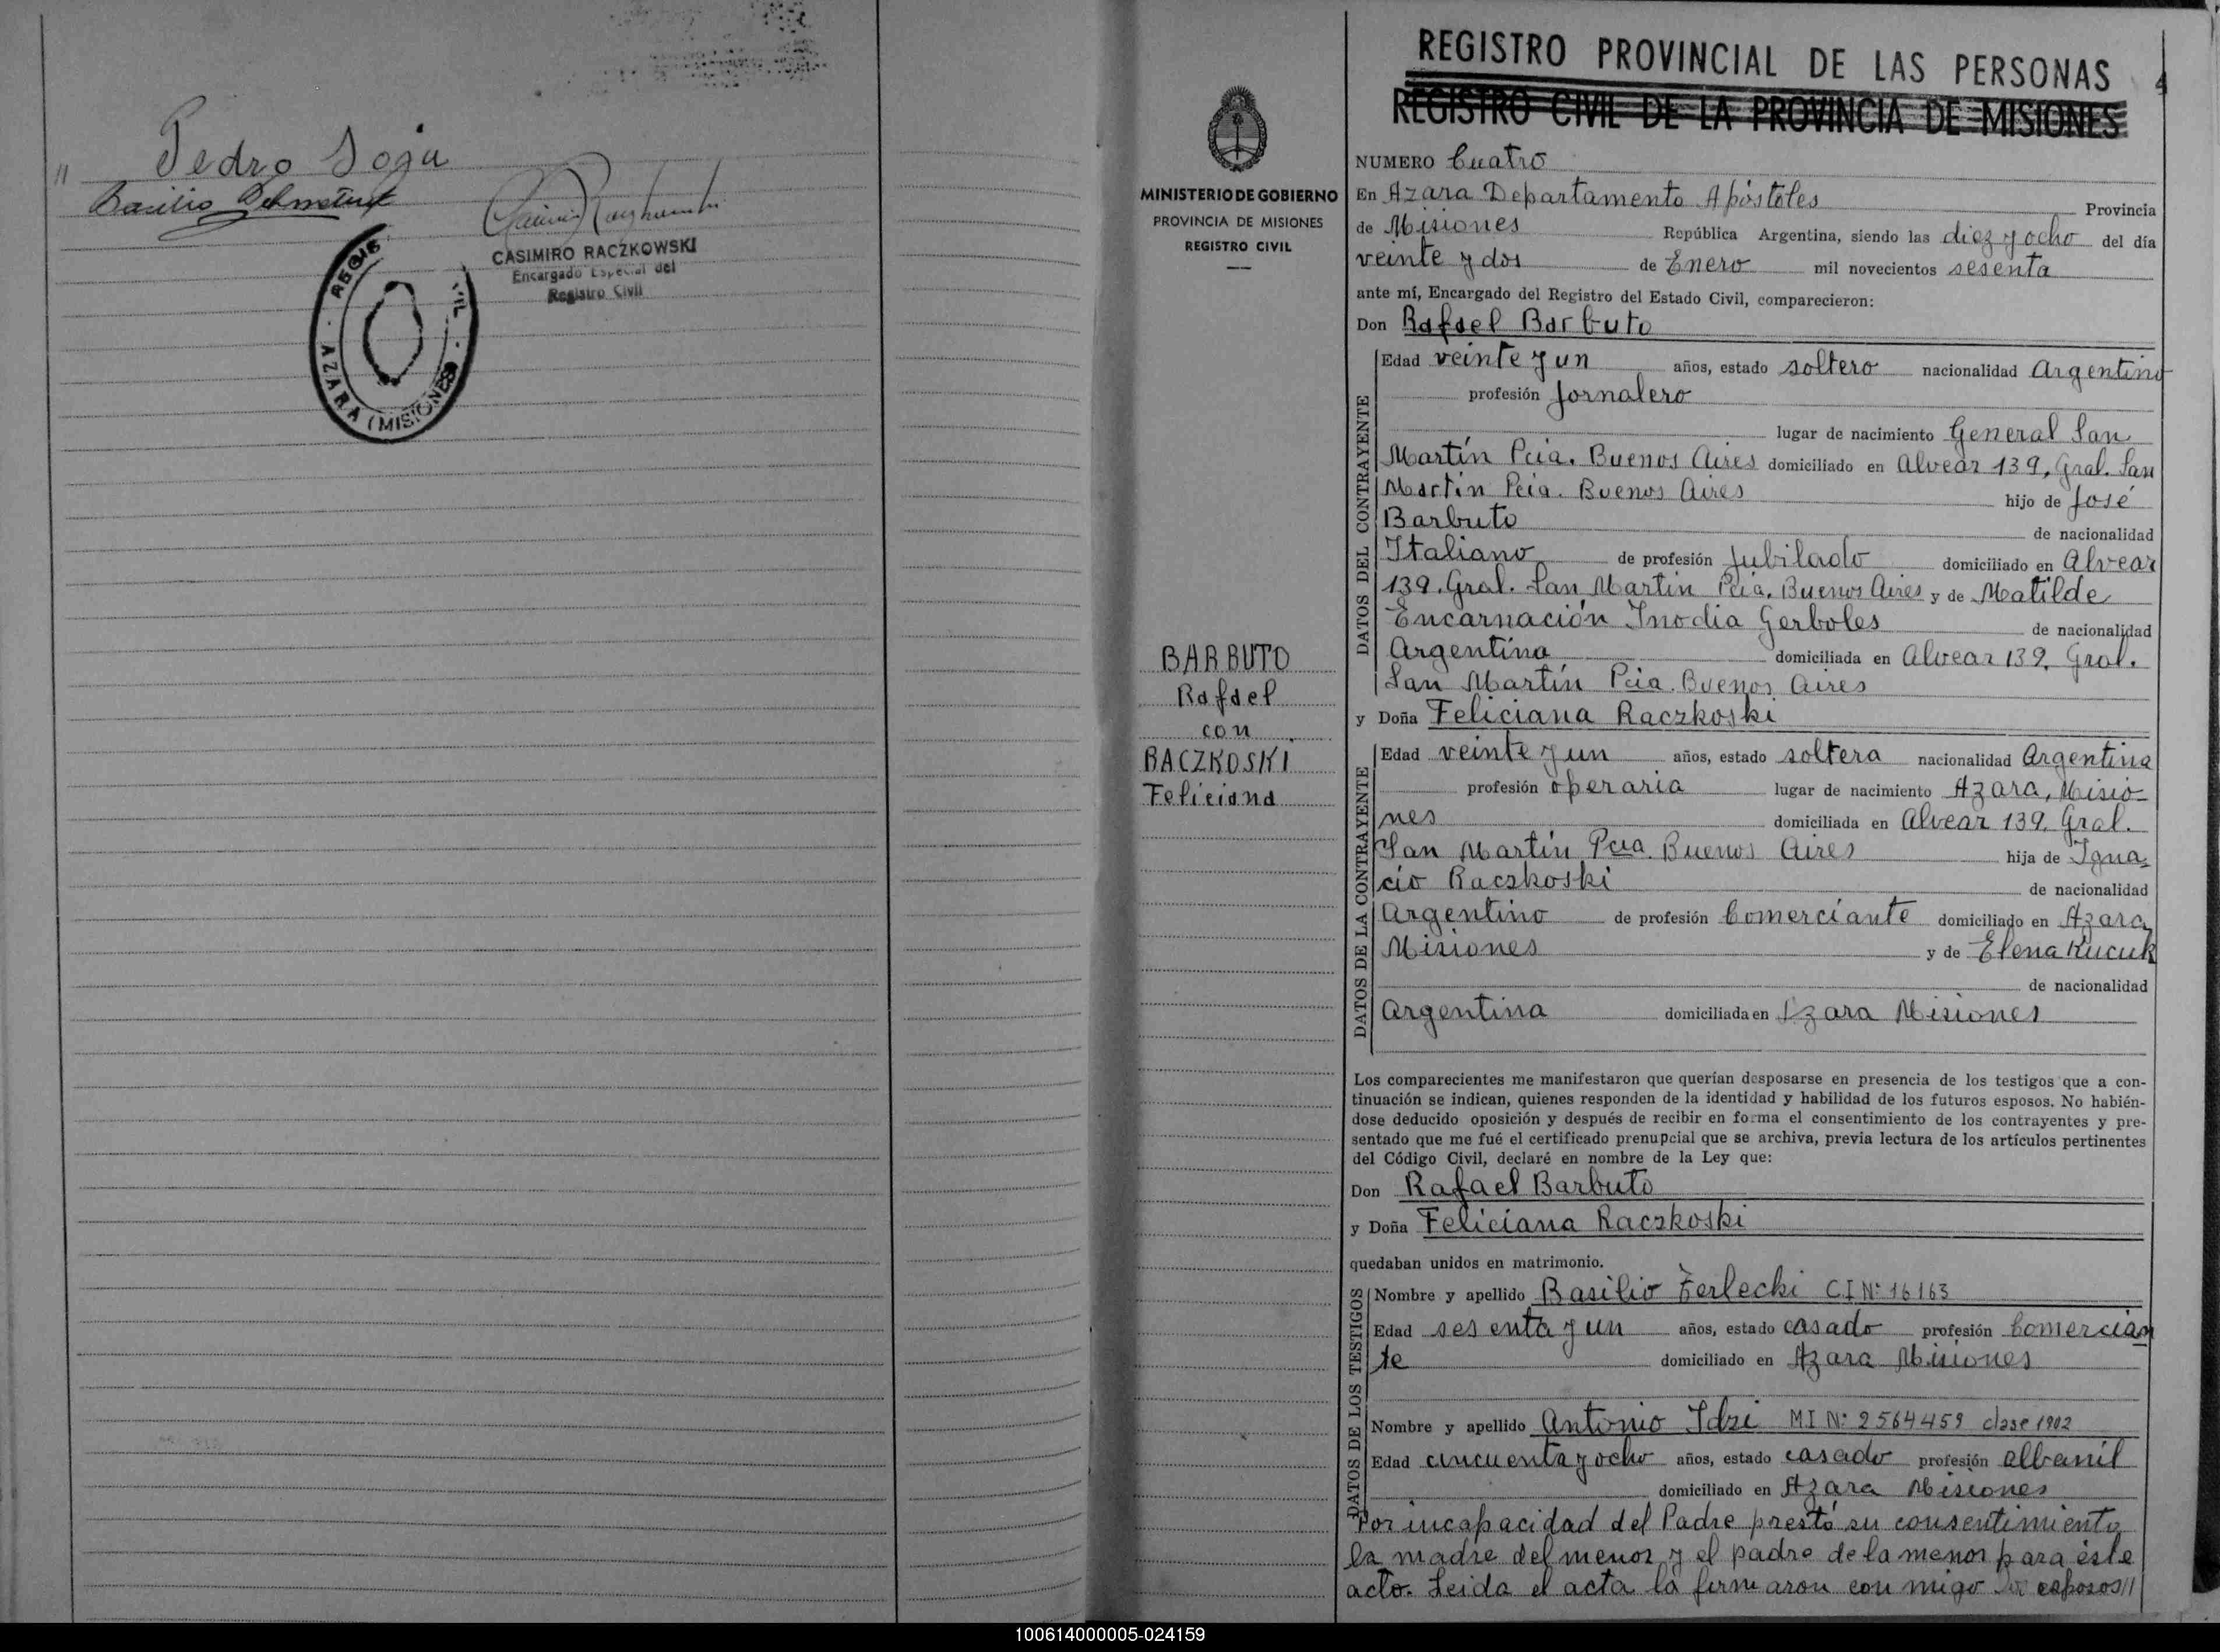 " Pedro Soja
Basilio
CASIMIRO RACZKOWSKI
Encargado Especial del
Registro Civil
AZARA (MISIONES)
MINISTERIO DE GOBIERNO
PROVINCIA DE MISIONES
REGISTRO CIVIL
BARBUTO
Rafael
con
RACZKOSKI
Feliciana
REGISTRO PROVINCIAL DE LAS PERSONAS 4
REGISTRO CIVIL DE LA PROVINCIA DE MISIONES
NUMERO Cuatro
En Azara Departamento Apóstoles Provincia
de Misiones República Argentina, siendo las diez y ocho del día
veinte y dos de Enero mil novecientos sesenta
ante mí, Encargado del Registro del Estado Civil, comparecieron:
Don Rafael Barbuto
DATOS DEL CONTRAYENTE
Edad veinte y un años, estado soltero nacionalidad Argentino
profesión Jornalero
lugar de nacimiento General San
Martín Pcia. Buenos Aires domiciliado en Alvear 139, Gral. San
Martín Pcia. Buenos Aires hijo de José
Barbuto de nacionalidad
Italiano de profesión Jubilado domiciliado en Alvear
139. Gral. San Martin Pcia. Buenos Aires y de Matilde
Encarnación Inodia Gerboles de nacionalidad
Argentina domiciliada en Alvear 139, Gral.
San Martín Pcia. Buenos Aires
y Doña Feliciana Raczkoski
DATOS DE LA CONTRAYENTE
Edad veinte y un años, estado soltera nacionalidad Argentina
profesión operaria lugar de nacimiento Azara, Misio-
nes domiciliada en Alvear 139, Gral.
San Martín, Pcia. Buenos Aires hija de Igna-
cio Raczkoski de nacionalidad
Argentino de profesión Comerciante domiciliado en Azara,
Misiones y de Elena Kucuk
de nacionalidad
Argentina domiciliada en Azara Misiones
Los comparecientes me manifestaron que querían desposarse en presencia de los testigos que a con-
tinuación se indican, quienes responden de la identidad y habilidad de los futuros esposos. No habién-
dose deducido oposición y después de recibir en forma el consentimiento de los contrayentes y pre-
sentado que me fué el certificado prenupcial que se archiva, previa lectura de los artículos pertinentes
del Código Civil, declaré en nombre de la Ley que:
Don Rafael Barbuto
y Doña Feliciana Raczkoski
quedaban unidos en matrimonio.
DATOS DE LOS TESTIGOS
Nombre y apellido Basilio Zerlecki C.I Nº 16163
Edad sesenta y un años, estado casado profesión Comercian
te domiciliado en Azara Misiones
Nombre y apellido Antonio Idzi M I Nº 2564459 clase 1902
Edad cincuenta y ocho años, estado casado profesión albanil
domiciliado en Azara Misiones
Por incapacidad del Padre prestó su consentimiento
la madre del menor y el padre de la menor para éste
acto. Leida el acta la firmaron con migo los esposos//
100614000005-024159